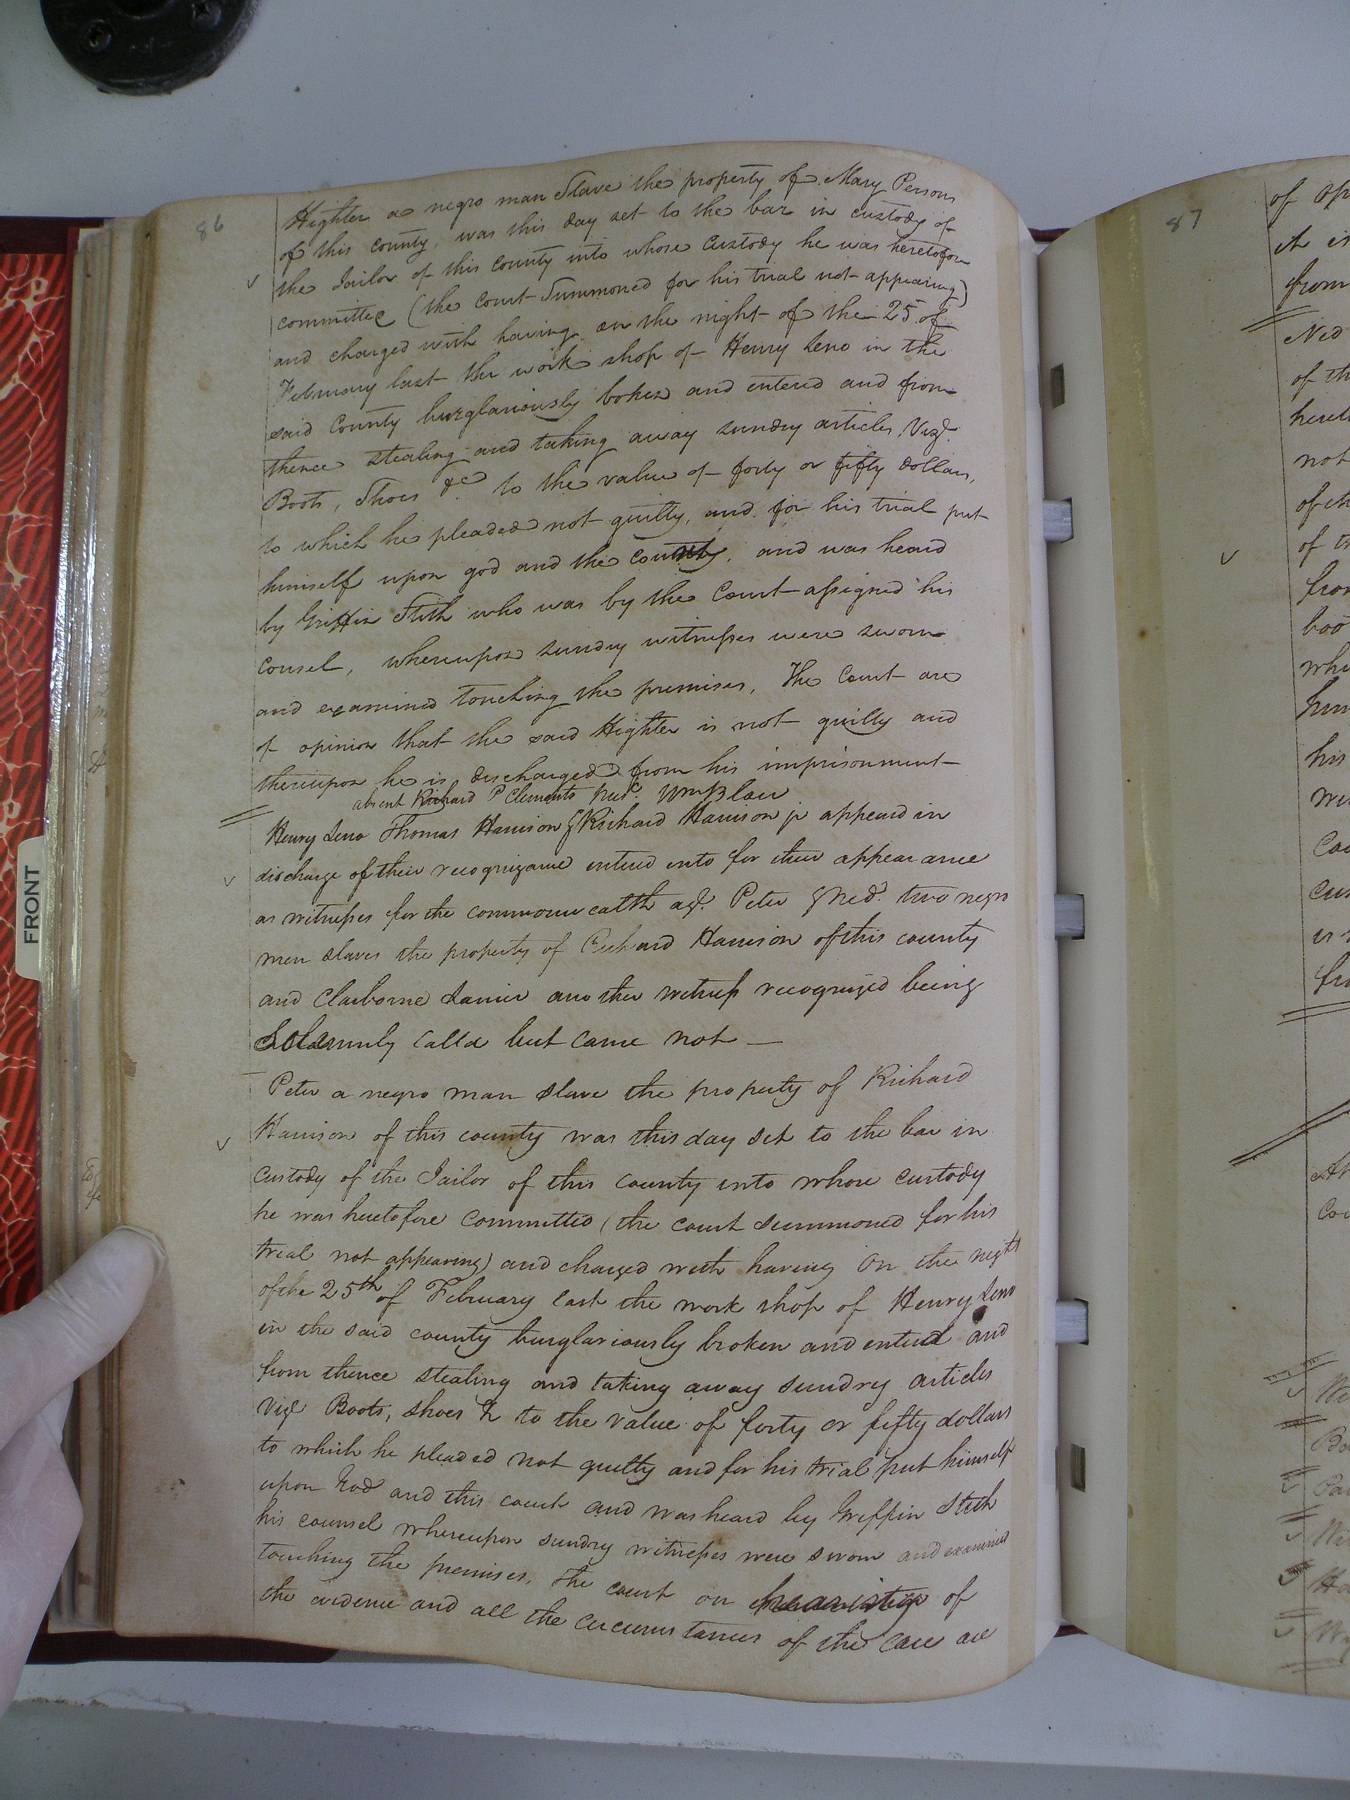 86
Highter a negro man Slave the property of Mary Persons
of this county, was this day set to the bar in custody of
the Jailor of this county into whose custody he was heretofore
committee (the court Summoned for his trial not appearing)
and charged with having on the night of the 25 of
February last the work shop of Henry Leno in the
said County burglariously boken and entered and from
thence stealing and taking away sundry articles, Vizt.
Boots, Shoes &c to the value of forty or fifty dollars,
to which he pleaded not guilty, and for his trial put
himself upon god and the county, and was heard
by Griffin Stith who was by the Court assigned his
counsel, whereupon sundry witnesses were sworn
and examined touching the premises, The Court are
of opinion that the said Highter is not guilty and
thereupon he is discharged from his imprisonment
absent Richard P Clements
Henry Leno Thomas Harrison & Richard Harrison jr appeard in
discharge of their recognizance entered into for their appearance
as witnesses for the commonwealth agt. Peter & Ned. two negro
men slaves the property of Richard Harrison of this county
and Claiborne Lanier another witness recognized being
Solemnly calld but came not —
Peter a negro man slave the property of Richard
Harrison of this county was this day set to the bar in
custody of the Jailor of this county into whose custody
he was heretofore committed (the court summoned for his
trial not appearing) and charged with having on the night
of the 25th of February last the work shop of Henry Leno
in the said county burglariously broken and entered and
from thence stealing and taking away sundry articles
Vizt Boots, shoes & to the value of forty or fifty dollars
to which he pleaded not guilty and for his trial put himself
upon God and this court and was heard by Griffin Stith
his counsel whereupon sundry witnesses were sworn and examined
touching the premises, the court on of
the evidence and all the circumstances of the case are
87
of
it is
from
Ned
of th
not